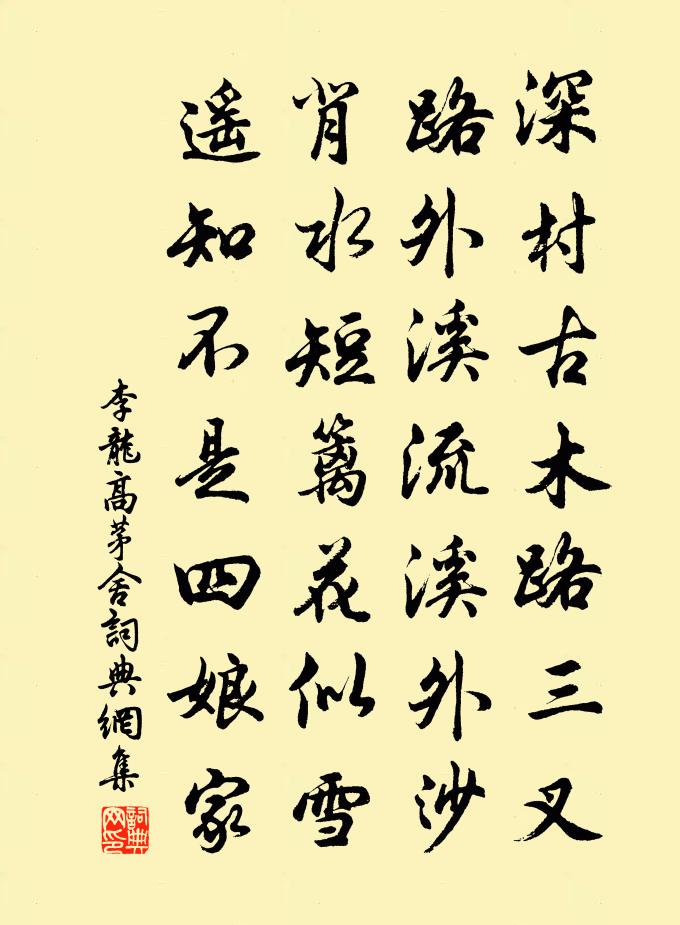 深村古木路三叉
路外溪流溪外沙
背水短籬花似雪
遥知不是四娘家
李龍高茅舍詞典網集
詞典網印